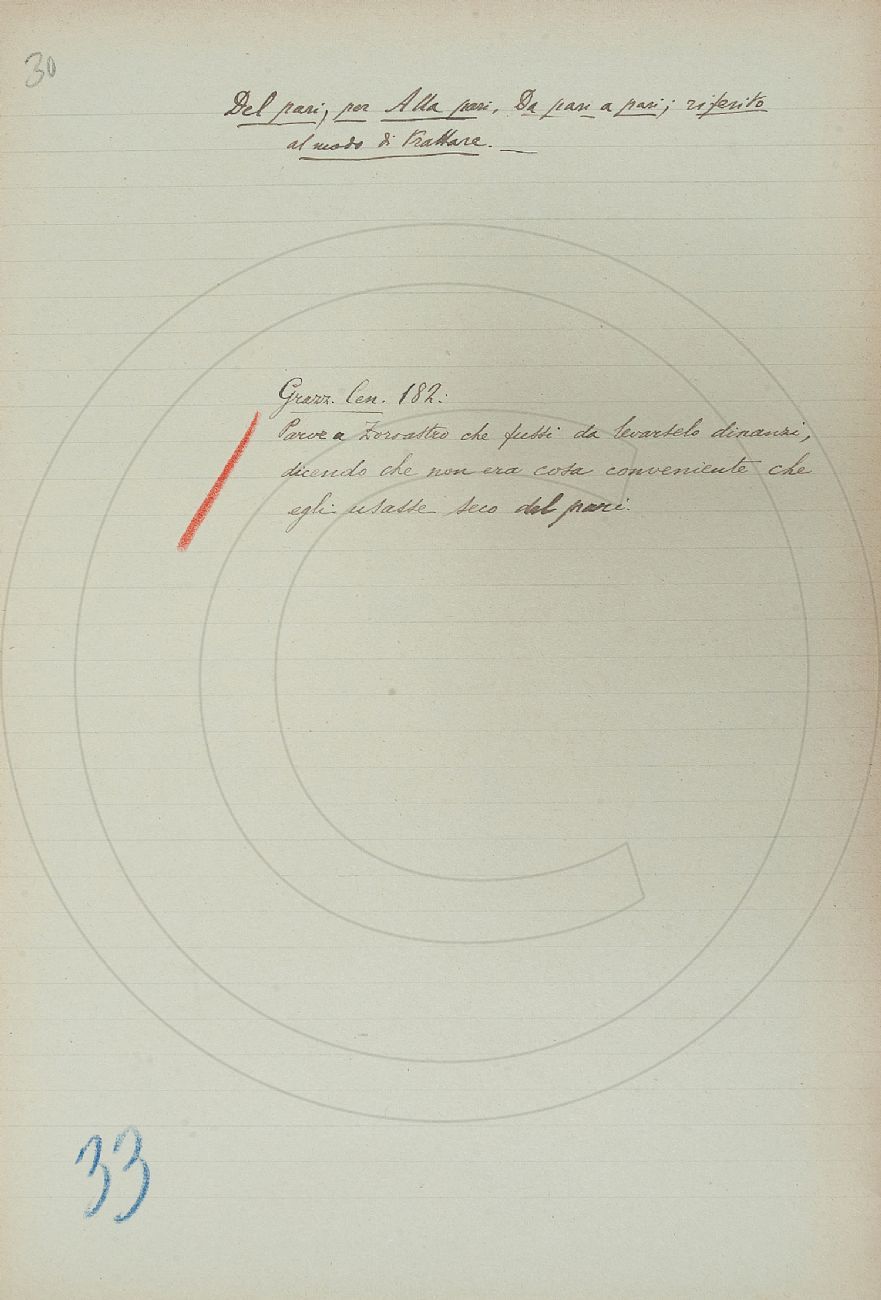 30
Del pari, per Alla pari, Da pari a pari; riferito
al modo di trattare. —
Grazz. Cen. 182:
Parve a Zoroastro che fussi da levarselo dinanzi,
dicendo che non era cosa conveniente che
egli usasse seco del pari.
33